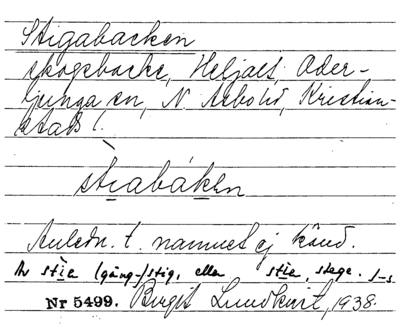 Stigabacken
skogsbacke, Heljalt, Oder-
ljunga sn, N. Åsbo hd, Kristian-
stads l.
stìabáken
Anledn. t. namnet ej känd.
Av stìe (gång-)stig, eller stìe, stege. J-s
Nr 5499. Birgit Lundkvist, 1938.